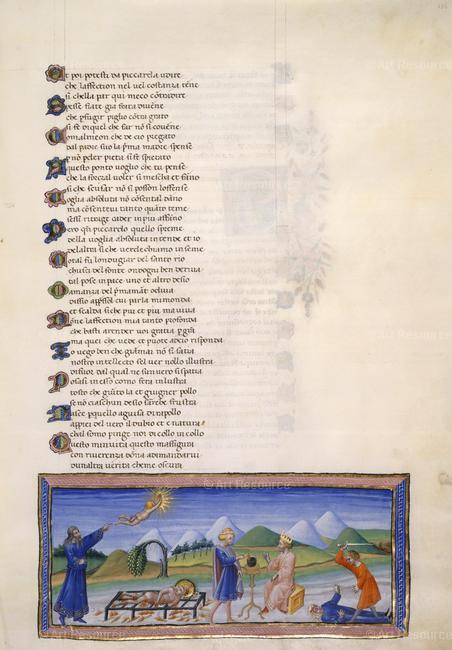 Et poi potesti da piccarda udire
che laffection nel vel costanza tene
si chella par qui meco cōtradire
Spesse fiate gia frate divēne
che p fugir piglio cōtra grato
si fe di quel che far nō si cōvene
Come almeon che de cio pregato
dal padre suo la p̄ma madre spense
p nō pder pieta si fe spietato
A questo ponto voglio che tu pense
che la forzal voler si mescha et fāno
si che scusar nō si posson loffense
Voglia absoluta nō cōsental dāno
ma cōsentevi tanto quāto teme
sessi ritrage cader in piu affāno
Pero qn piccarda quello spreme
della voglia absoluta intende et io
dellaltra si che ver dechiamo inseme
Cotal fu londeggiar del santo rio
chusci del fonte ondogni ver deriva
tal pose in pace uno et altro desio
O amanza del p̄mamāte o diva
dissio cui parla minonda
et scalda si che piu et piu maviva
None laffection mia tanto profonda
che basti a render voi gratia p gr̄a
ma quei che vede et puote acio risponda
Io vegio ben che giamai nō si satia
nostro intelletto sel ver nollo illustra
di fuor dal qual ne sun vero si spatia
Posasi in esso come fera in lustra
tosto che giūto la et giugner pollo
se nō ciaschun desio sarebe frustra
Nasce p quello a guisa di rapollo
appiei del vero il dubio et e natura
chal sōmo pinge noi di collo in collo
Questo minvita questo massigura
con riverenza dōna adimandarvi
dunaltra verita cheme oscura
© Art Resource